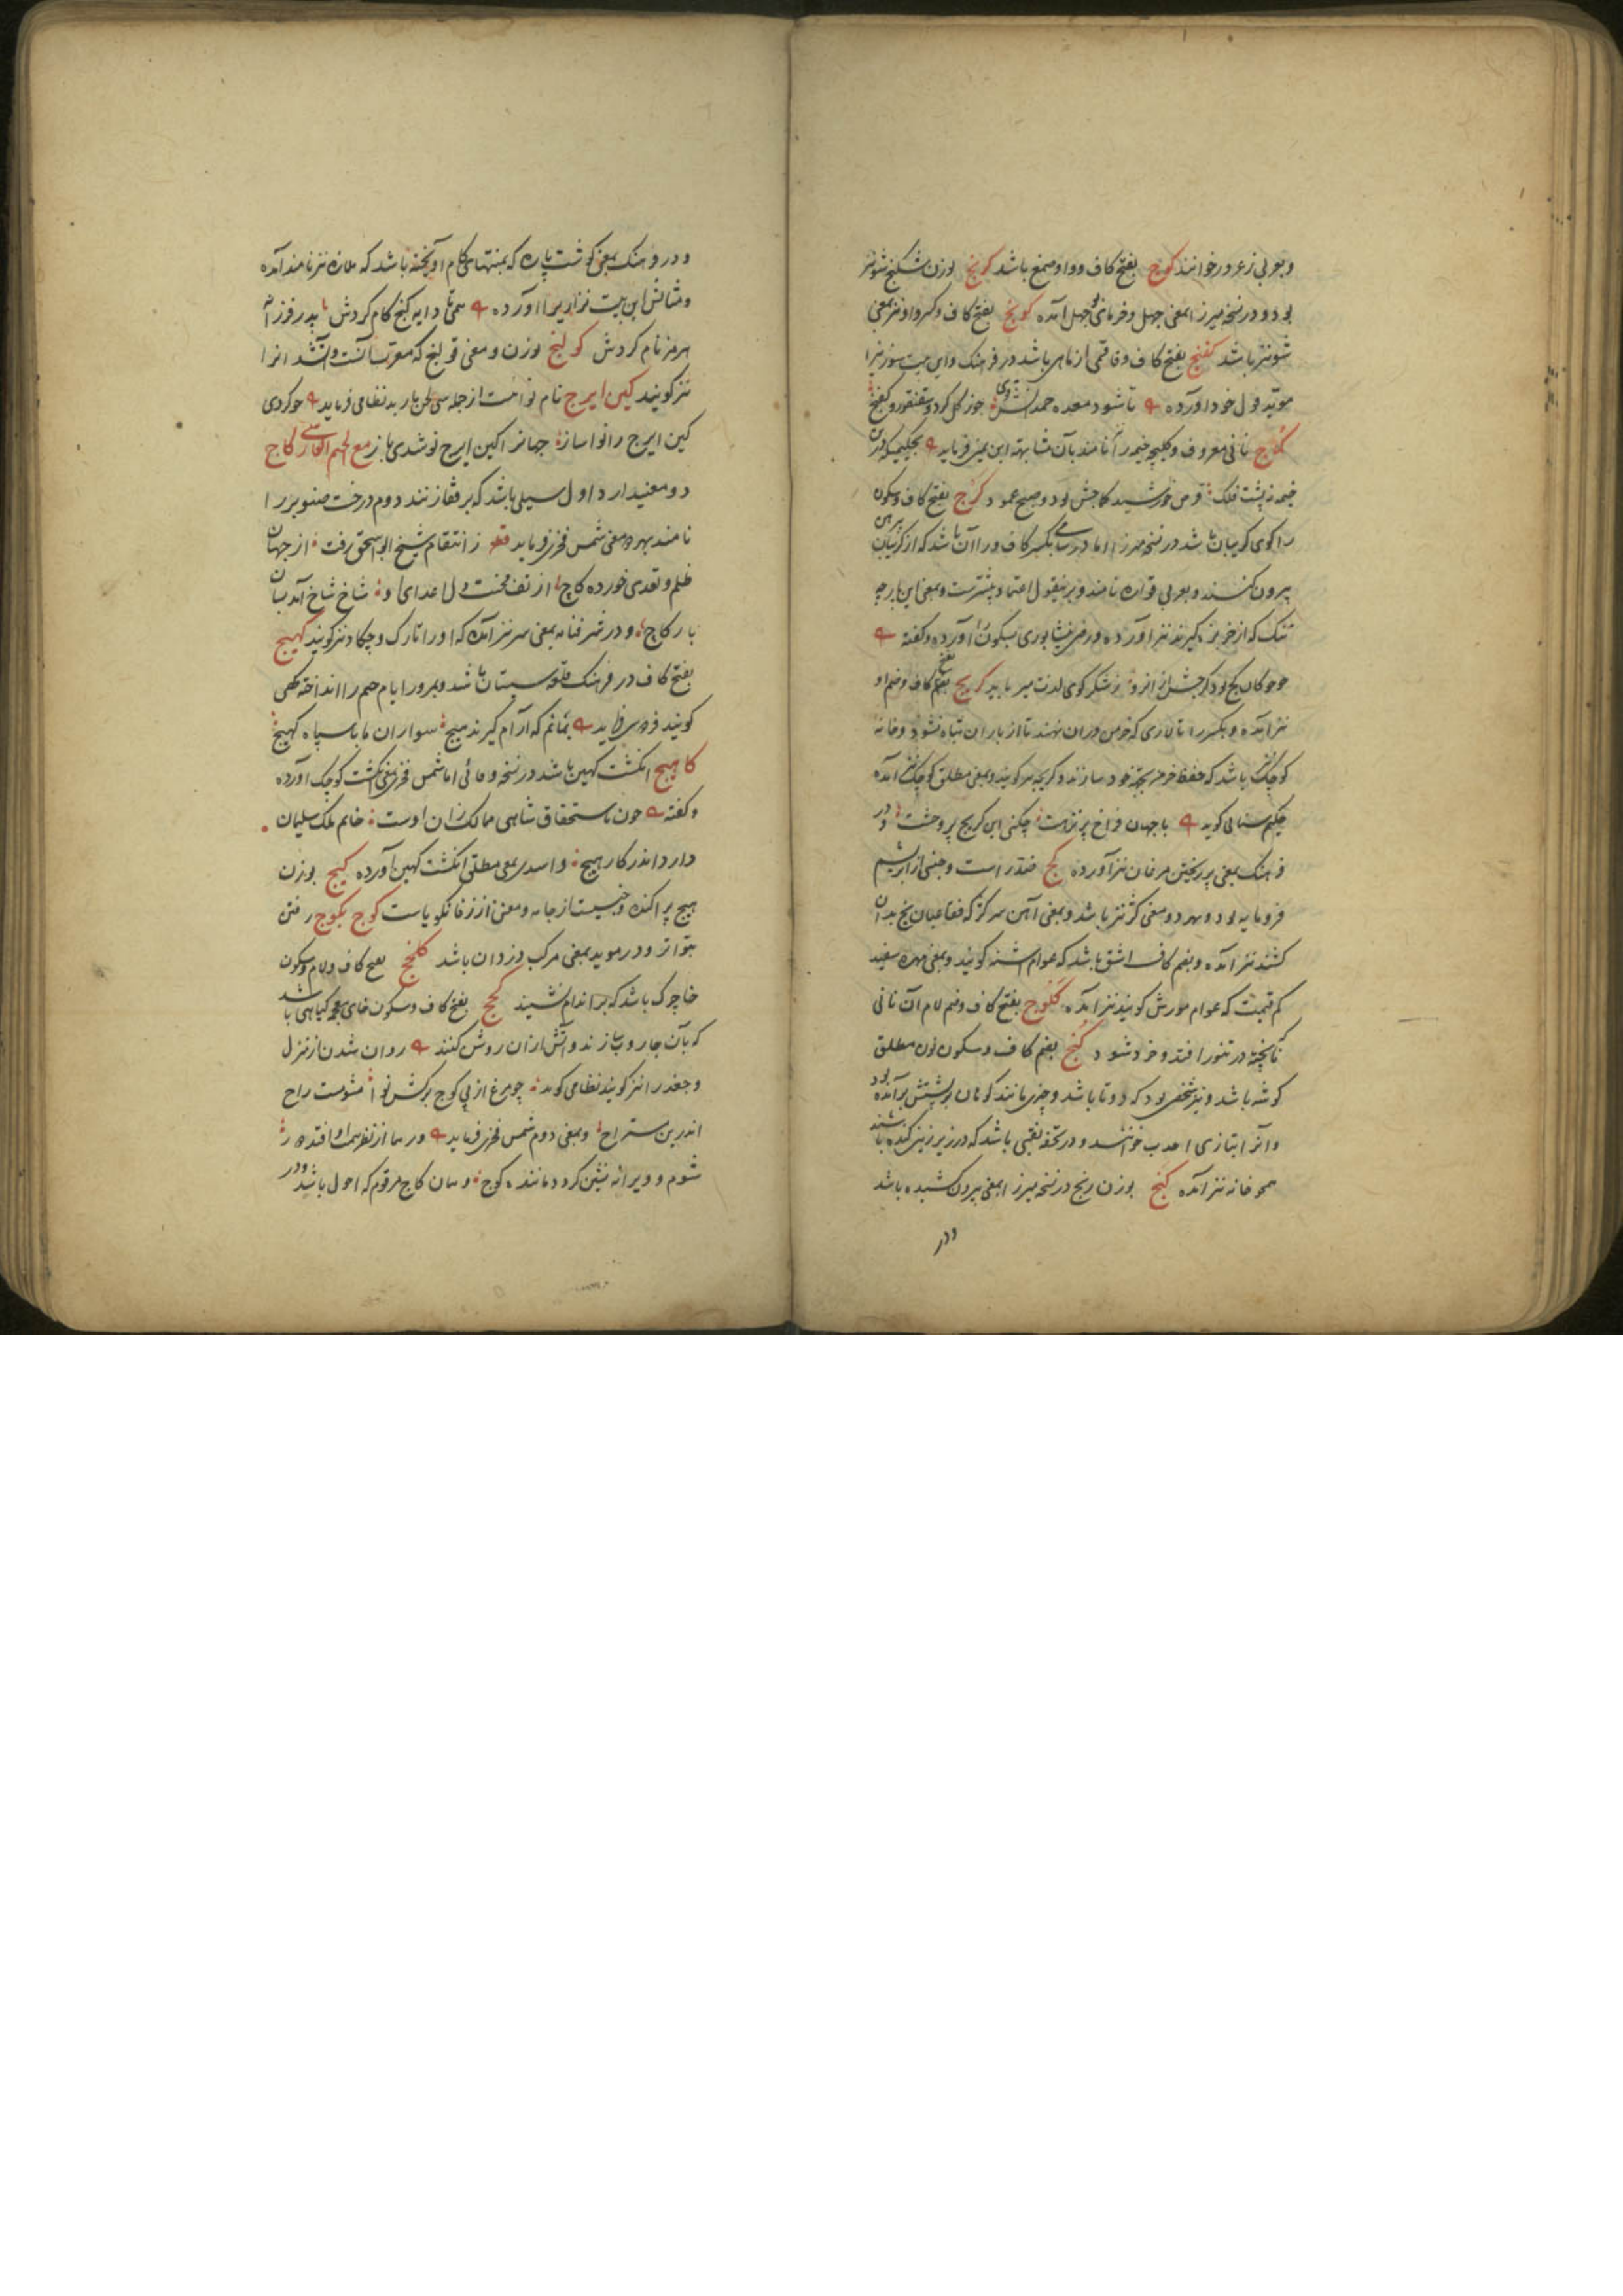 وبعربی زعرور خوانند کوج بفتح کاف و واو صمغ باشد کرنج بوزن شکنج شونیز
بود و در نسخه میرزا بمعنی جهل و فرمائی جهل آمده کونج بفتح کاف و کسر واو نیز بمعنی
شونیز باشد کفنج بفتح کاف و فا قسمی از ماهی باشد در فرهنگ و این بیت سوزنی را
مؤید قول خود آورده تا شود معده جوز کل کرد و سقنقور و کفنج
کماج نانی معروف و کلیچه خیمه را نامند بآن مشابهت ابن یمین فرماید
خیمه زیست فلک قرص خورشید کماجش بود و صبح عمود کرج بفتح کاف و سکون
را کوی کریبان باشد در نسخه میرزا اما در سامی بکسر کاف و را آن باشد که از کریبان پیرهن
بیرون کنند و بعربی قواره نامند و برین قول اعتماد بیشترست و بمعنی این پارچه
تنک که از خربزه کیرند نیز آورده و رضی نیشابوری بسکون را آورده و کفته
چو کان کج بود کرجش از ز شکر کوی لذت میرباید کریج بضم کاف و ضم او
نیز آمده و بکسر را تالاری که خرمن در آن نهند تا از باران تباه نشود و خانه
کوچک باشد که حفظ خرمن بجهة خود سازند و کریچه نیز کویند و بمعنی مطلق کوچک نیز آمده
حکیم سنائی کوید با جهان فراخ پر نزهت چکنی این کریج پر وحشت و در
فرهنگ بمعنی پر ریختن مرغان نیز آورده کج ضد راست و جنسی از ابریشم
فرومایه بود و بهر دو معنی کژ نیز باشد و بمعنی آهن سر کژ که فقاعیان یخ بدان
کشند نیز آمده و بضم کاف اشق باشد که عوام اشنه کویند و بمعنی مهره سفید
کم قیمت که عوام مورش کویند نیز آمده کلوج بفتح کاف و ضم لام آن نانی
ناپخته در تنور افتد و خرد شود کنج بضم کاف و سکون نون مطلق
کوشه باشد و نیز شخصی بود که دوتا باشد و چیزی مانند کوهان بر پشتش برآمده بود
و آنرا بتازی احدب خوانند و در تحفه نقبی باشد که در زیر زمین کنده باشند
همچو خانه نیز آمده کنج بوزن رنج در نسخه میرزا بمعنی بیرون کشیده باشد
ودر
ودر فرهنگ بمعنی کوشت پاره که بمنتهای کام آویخته باشد که ملازه نیز نامند آمده
و مثالش این بیت نزاری را آورده همی تا دایه کنج کام کردش پدر فرزانه
هرمز نام کردش کولنج بوزن و معنی قولنج که معرب آنست و آنرا
نیز کویند کین ایرج نام نوائیست از جمله سی لحن باربد نظامی فرماید چو کردی
کین ایرج را نوا ساز جهانرا کین ایرج نو شدی باز مع الجیم الفارسی کاج
دو معنی دارد اول سیلی باشد که بر قفا زنند دوم درخت صنوبر را
نامند بهر دو معنی شمس فخری فرماید قطعه ز انتقام شیخ ابو اسحق رفت از جهان
ظلم و تعدی خورده کاج از تف محنت دل اعدای او شاخ شاخ آمد بسان
بار کاج و در شرفنامه بمعنی سر نیز آمده که او را تارک و چکاد نیز کویند کهیج
بفتح کاف در فرهنگ قلعه سیستان باشد و بمرور ایام جیم را انداخته کهی
کویند فردوسی فرماید بمانم که آرام کیرند هیچ سواران ما با سپاه کهیج
کابیج انکشت کهین باشد در نسخه وفائی اما شمس فخری بمعنی انکشت کوچک آورده
و کفته چون باستحقاق شاهی ممالک زان اوست خاتم ملک سلیمان
دارد اندر کابیج و اسدی بمعنی مطلق انکشت کهین آورده کیج بوزن
هیچ پراکنده و جنسیست از جامه و معنی از زفانکویاست کوج بکوج رفتن
بتواتر و در مؤید بمعنی مرکب دزدان باشد کلخج بفتح کاف و لام و سکون
خا چرک باشد که بر اندام نشیند کخج بفتح کاف و سکون خای معجمه کیاهی باشد
که بآن جاروب سازند و آتش از آن روشن کنند روان شدن از منزل
و جغد را نیز کویند نظامی کوید چو مرغ از پی کوج برکش نوا مشو مست راح
اندرین مستراح و بمعنی دوم شمس فخری فرماید ورهما از نظر همت او افتد دور
شوم و ویرانه نشین کردد مانندهٔ کوج و همان کاج مرقوم که احول باشد ودر